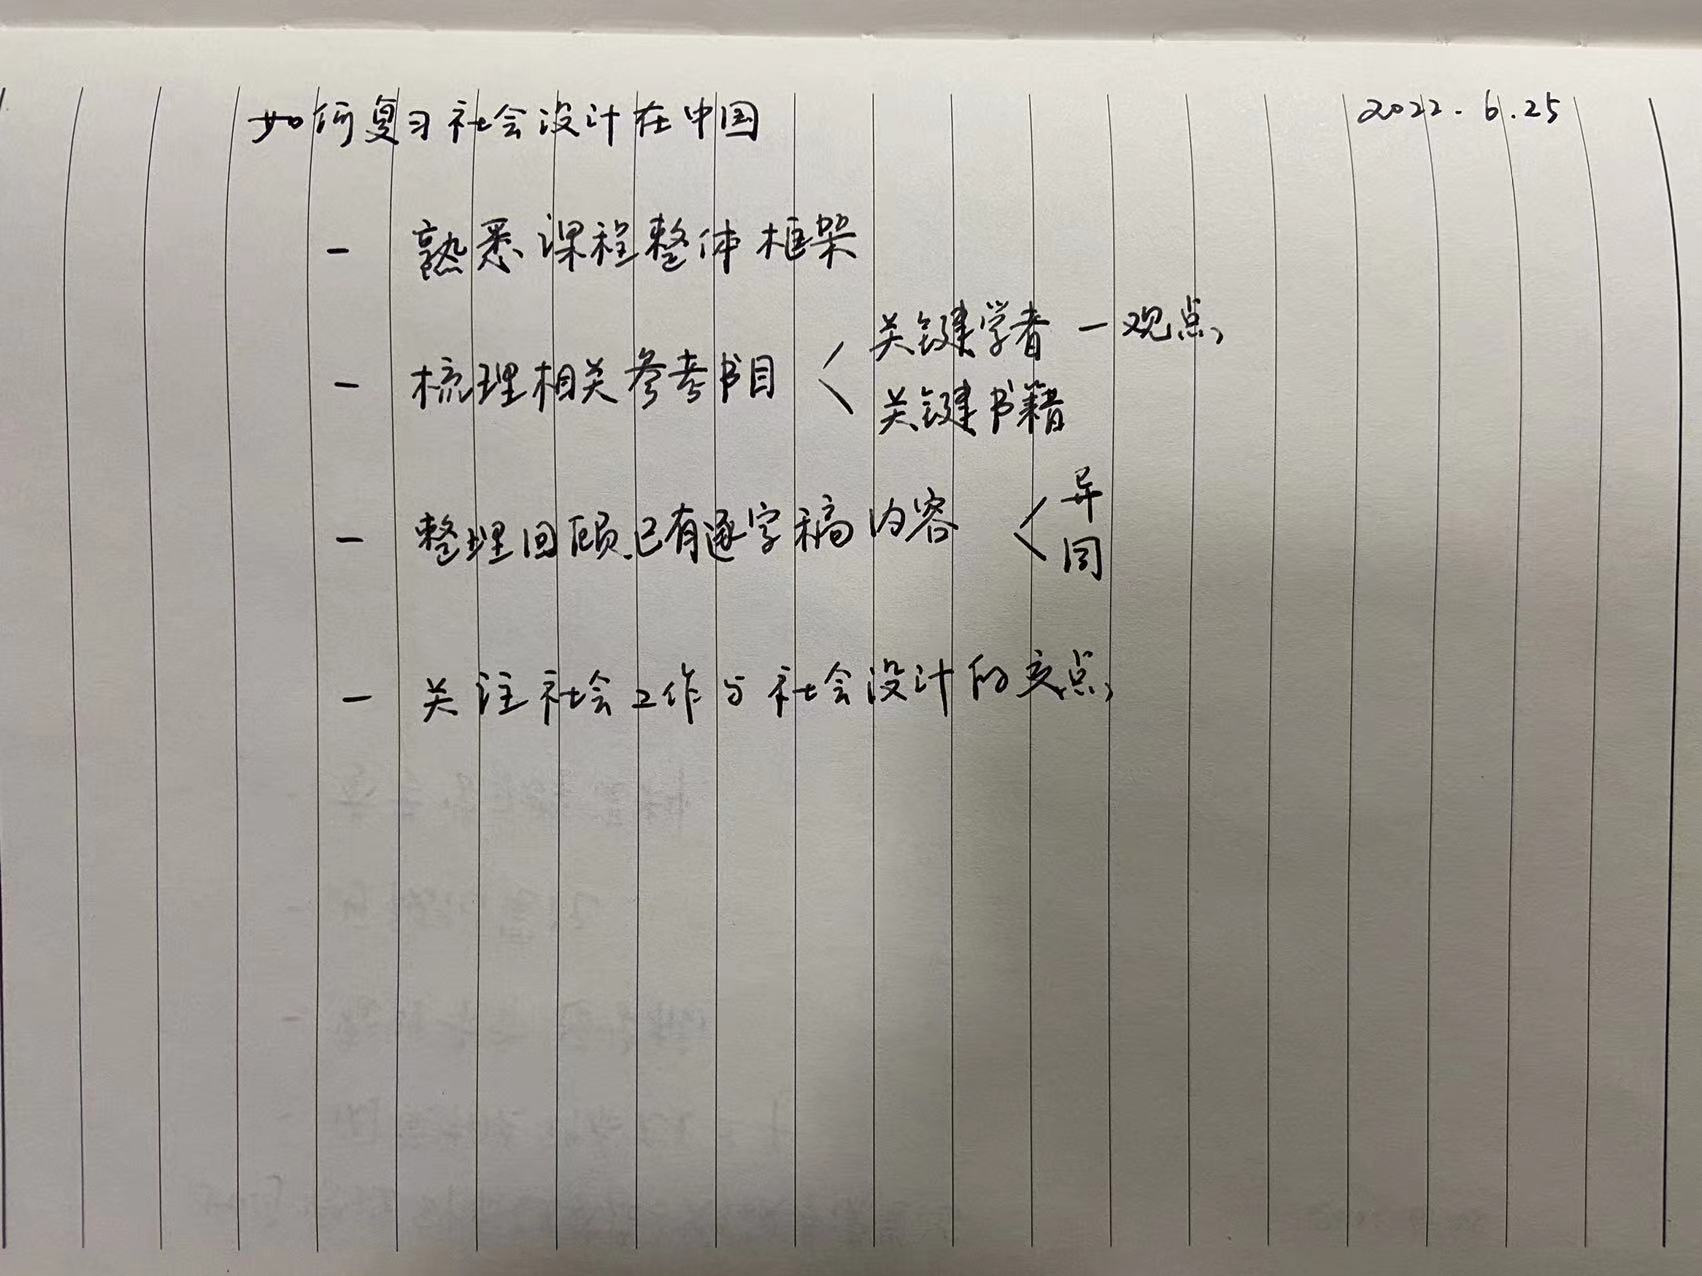 如何复习社会设计在中国 2022.6.25
- 熟悉课程整体框架
- 梳理相关参考书目 < 关键学者 - 观点
关键书籍
- 整理回顾已有逐字稿内容 < 异
同
- 关注社会工作与社会设计的交点